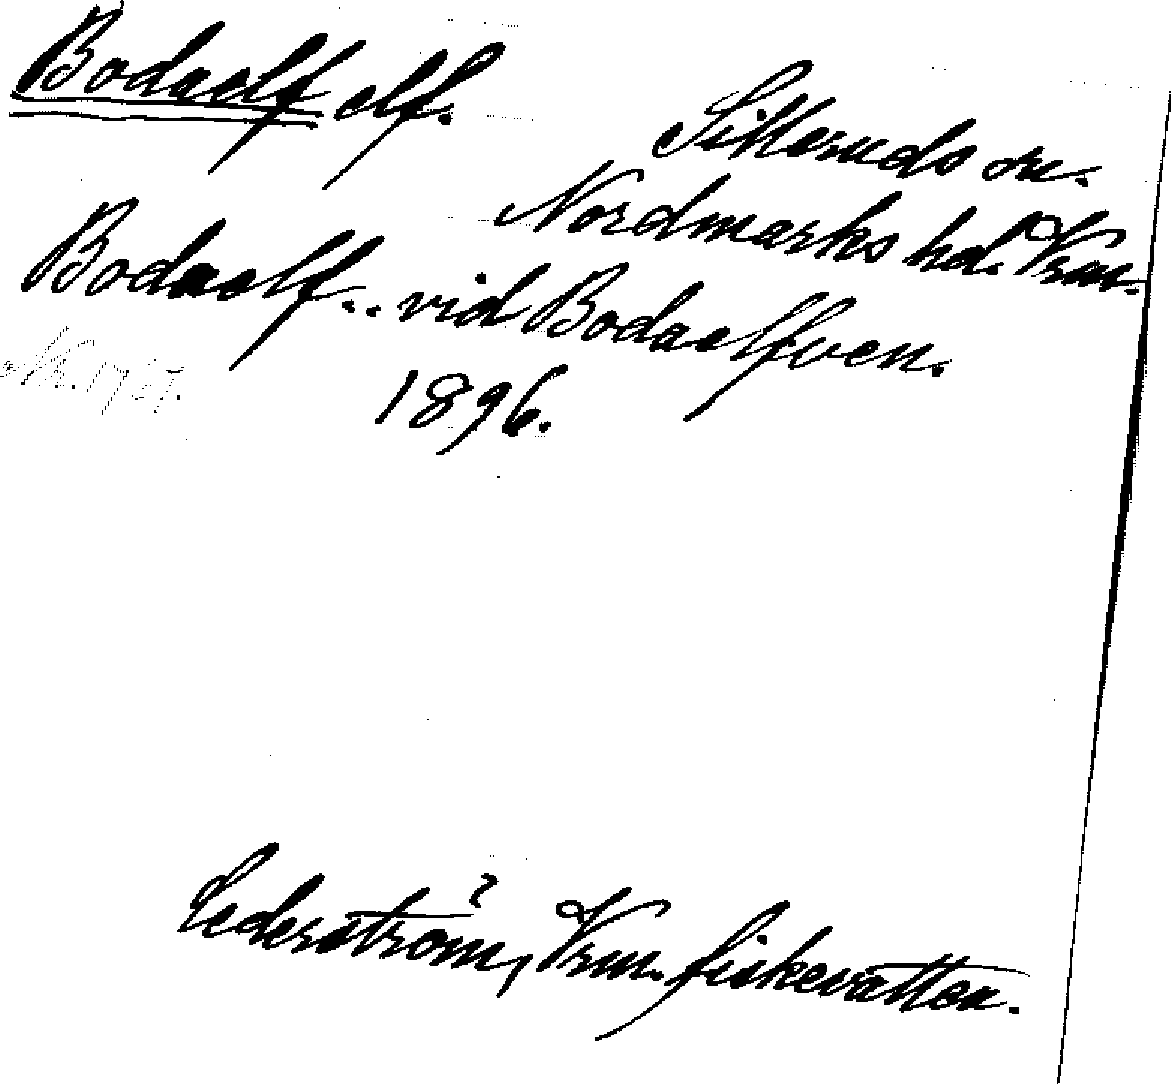 Bodaelf elf.
Silleruds sn.
Nordmarks hd. Vrm.
Bodaelf... vid Bodaelfven.
1896.
Cederström, Vrm. fiskevatten.